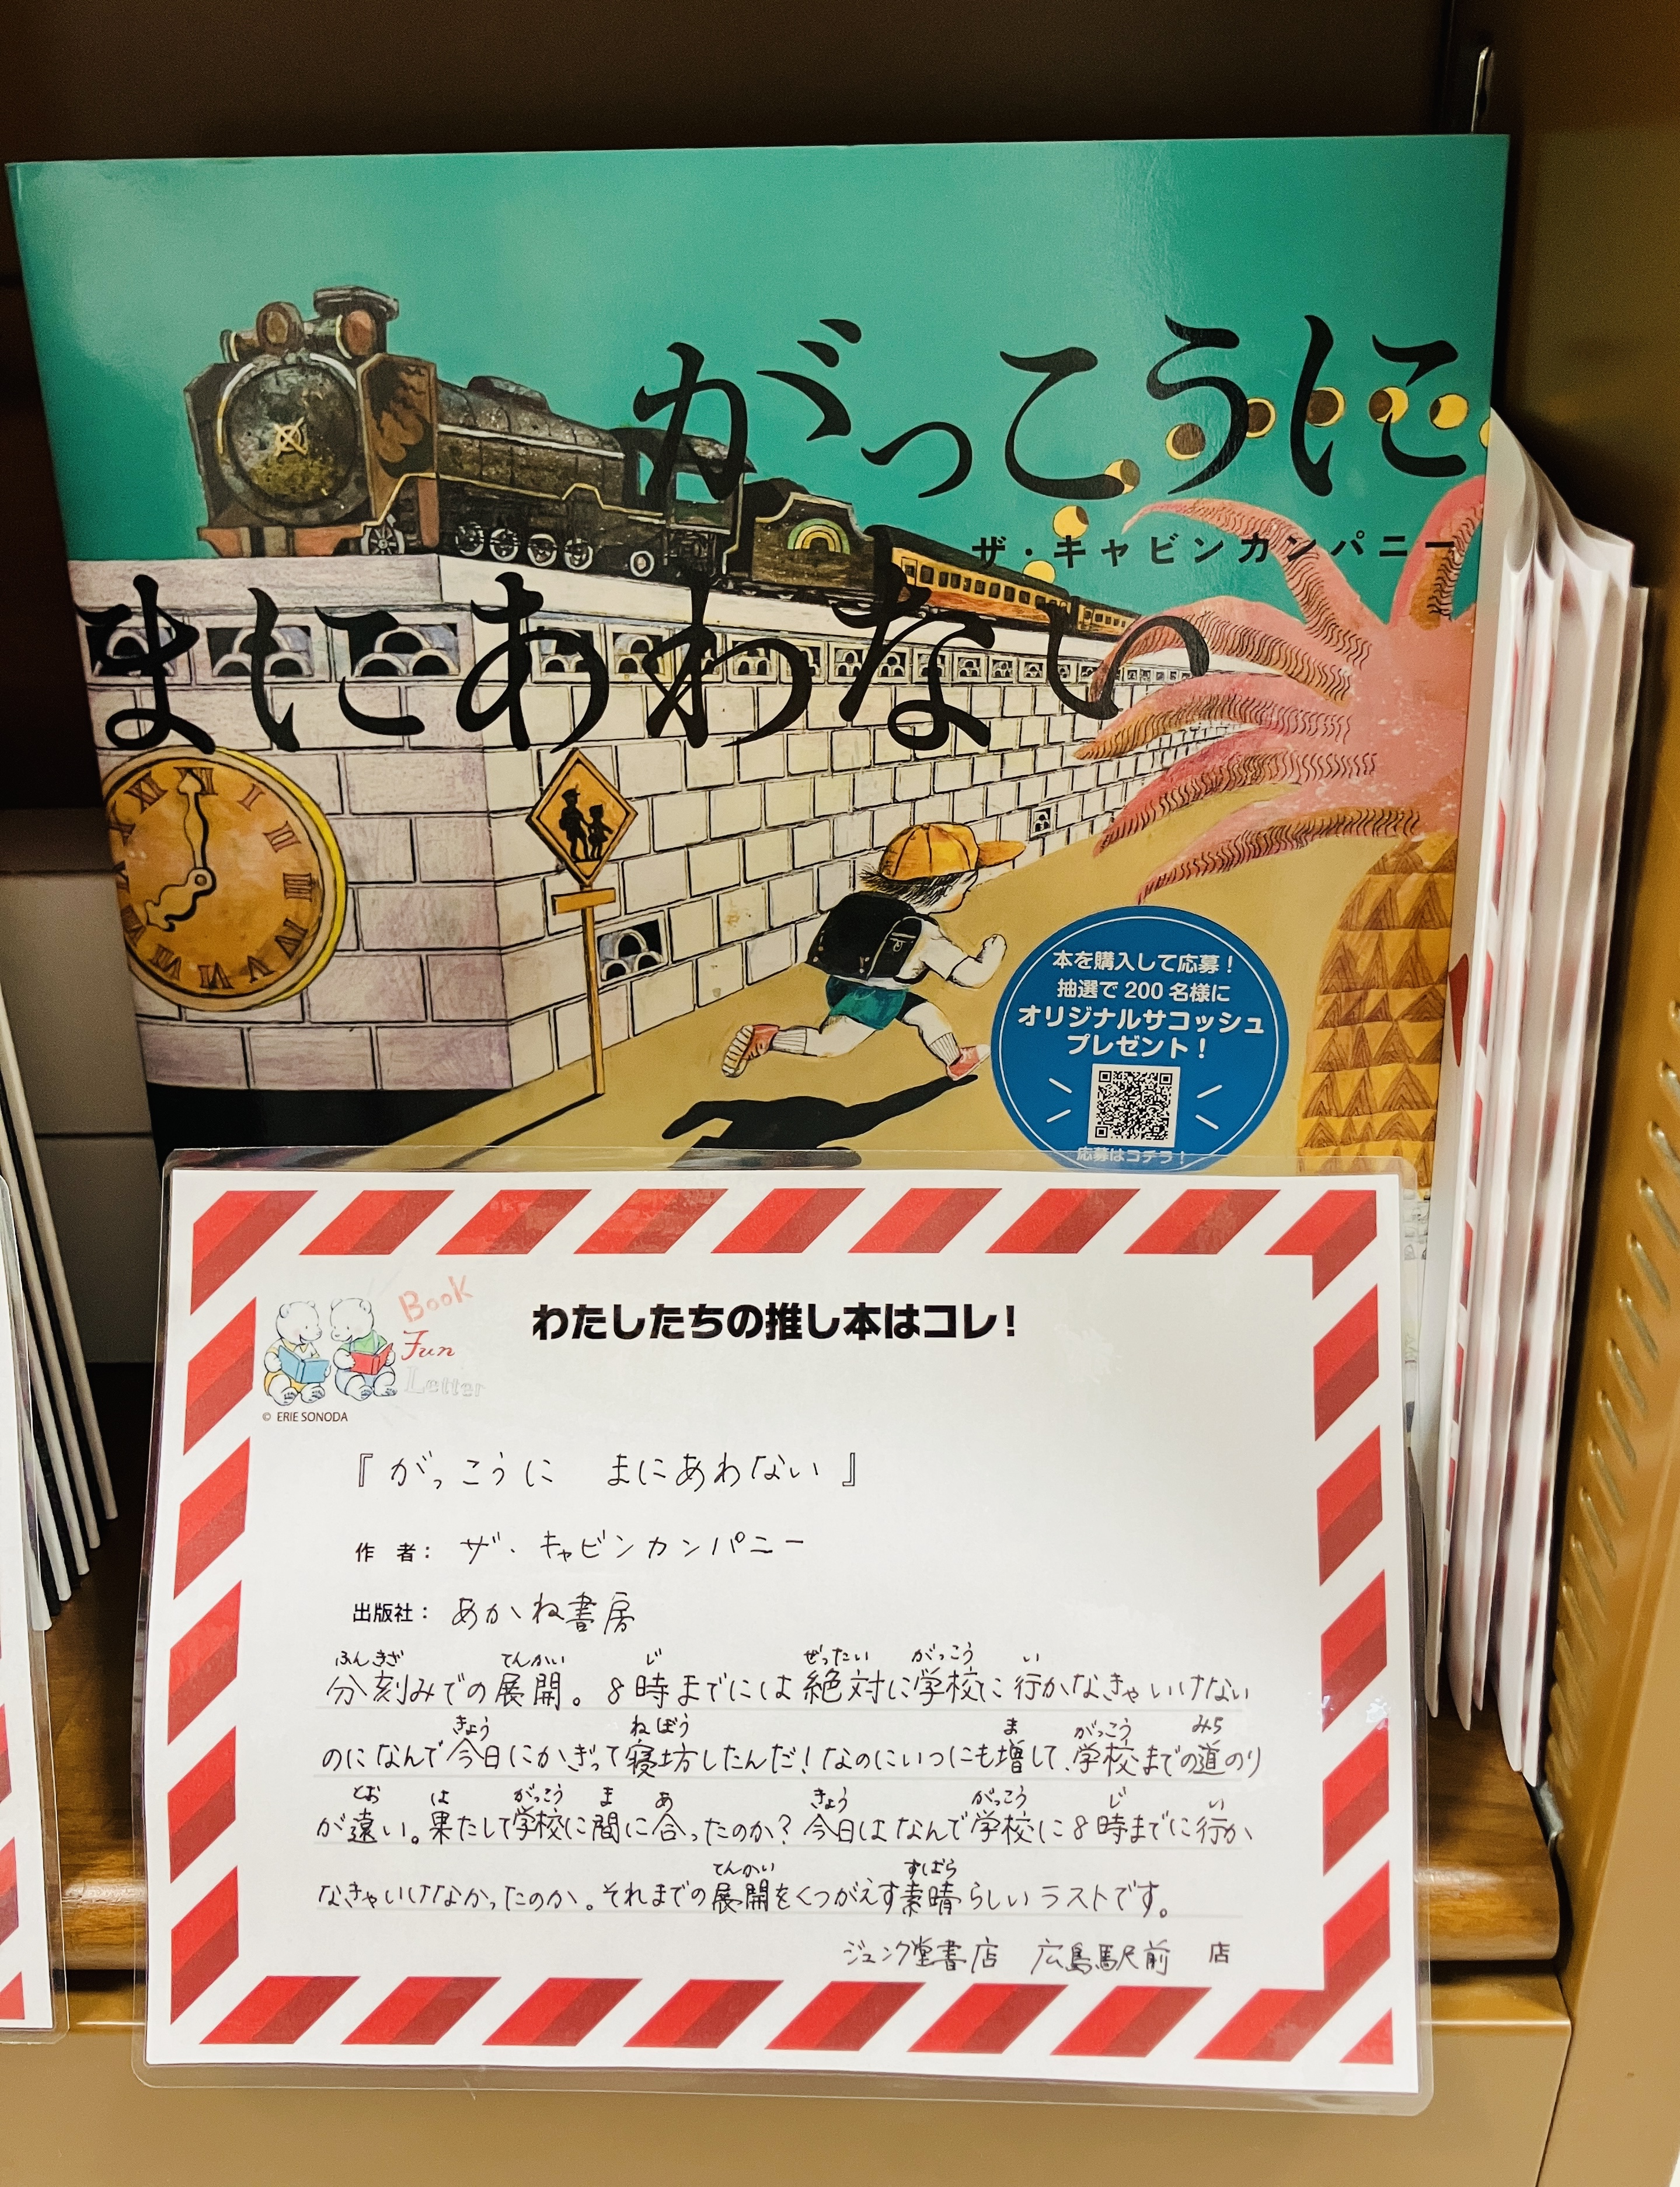 がっこうに
ザ・キャビンカンパニー
まにあわない
本を購入して応募！
抽選で200名様に
オリジナルサコッシュ
プレゼント！
応募はコチラ！
Book
Fun
Letter
© ERIE SONODA
わたしたちの推し本はコレ！
『がっこうに　まにあわない』
作　者：ザ・キャビンカンパニー
出版社：あかね書房
ふんきざ てんかい じ ぜったい がっこう い
分刻みでの展開。8時までには絶対に学校に行かなきゃいけない
きょう ねぼう ま がっこう みち
のになんで今日にかぎって寝坊したんだ！なのにいつにも増して、学校までの道のり
とお は がっこう ま あ きょう がっこう じ い
が遠い。果たして学校に間に合ったのか？今日はなんで学校に8時までに行か
てんかい すばら
なきゃいけなかったのか。それまでの展開をくつがえす素晴らしいラストです。
ジュンク堂書店　広島駅前　店